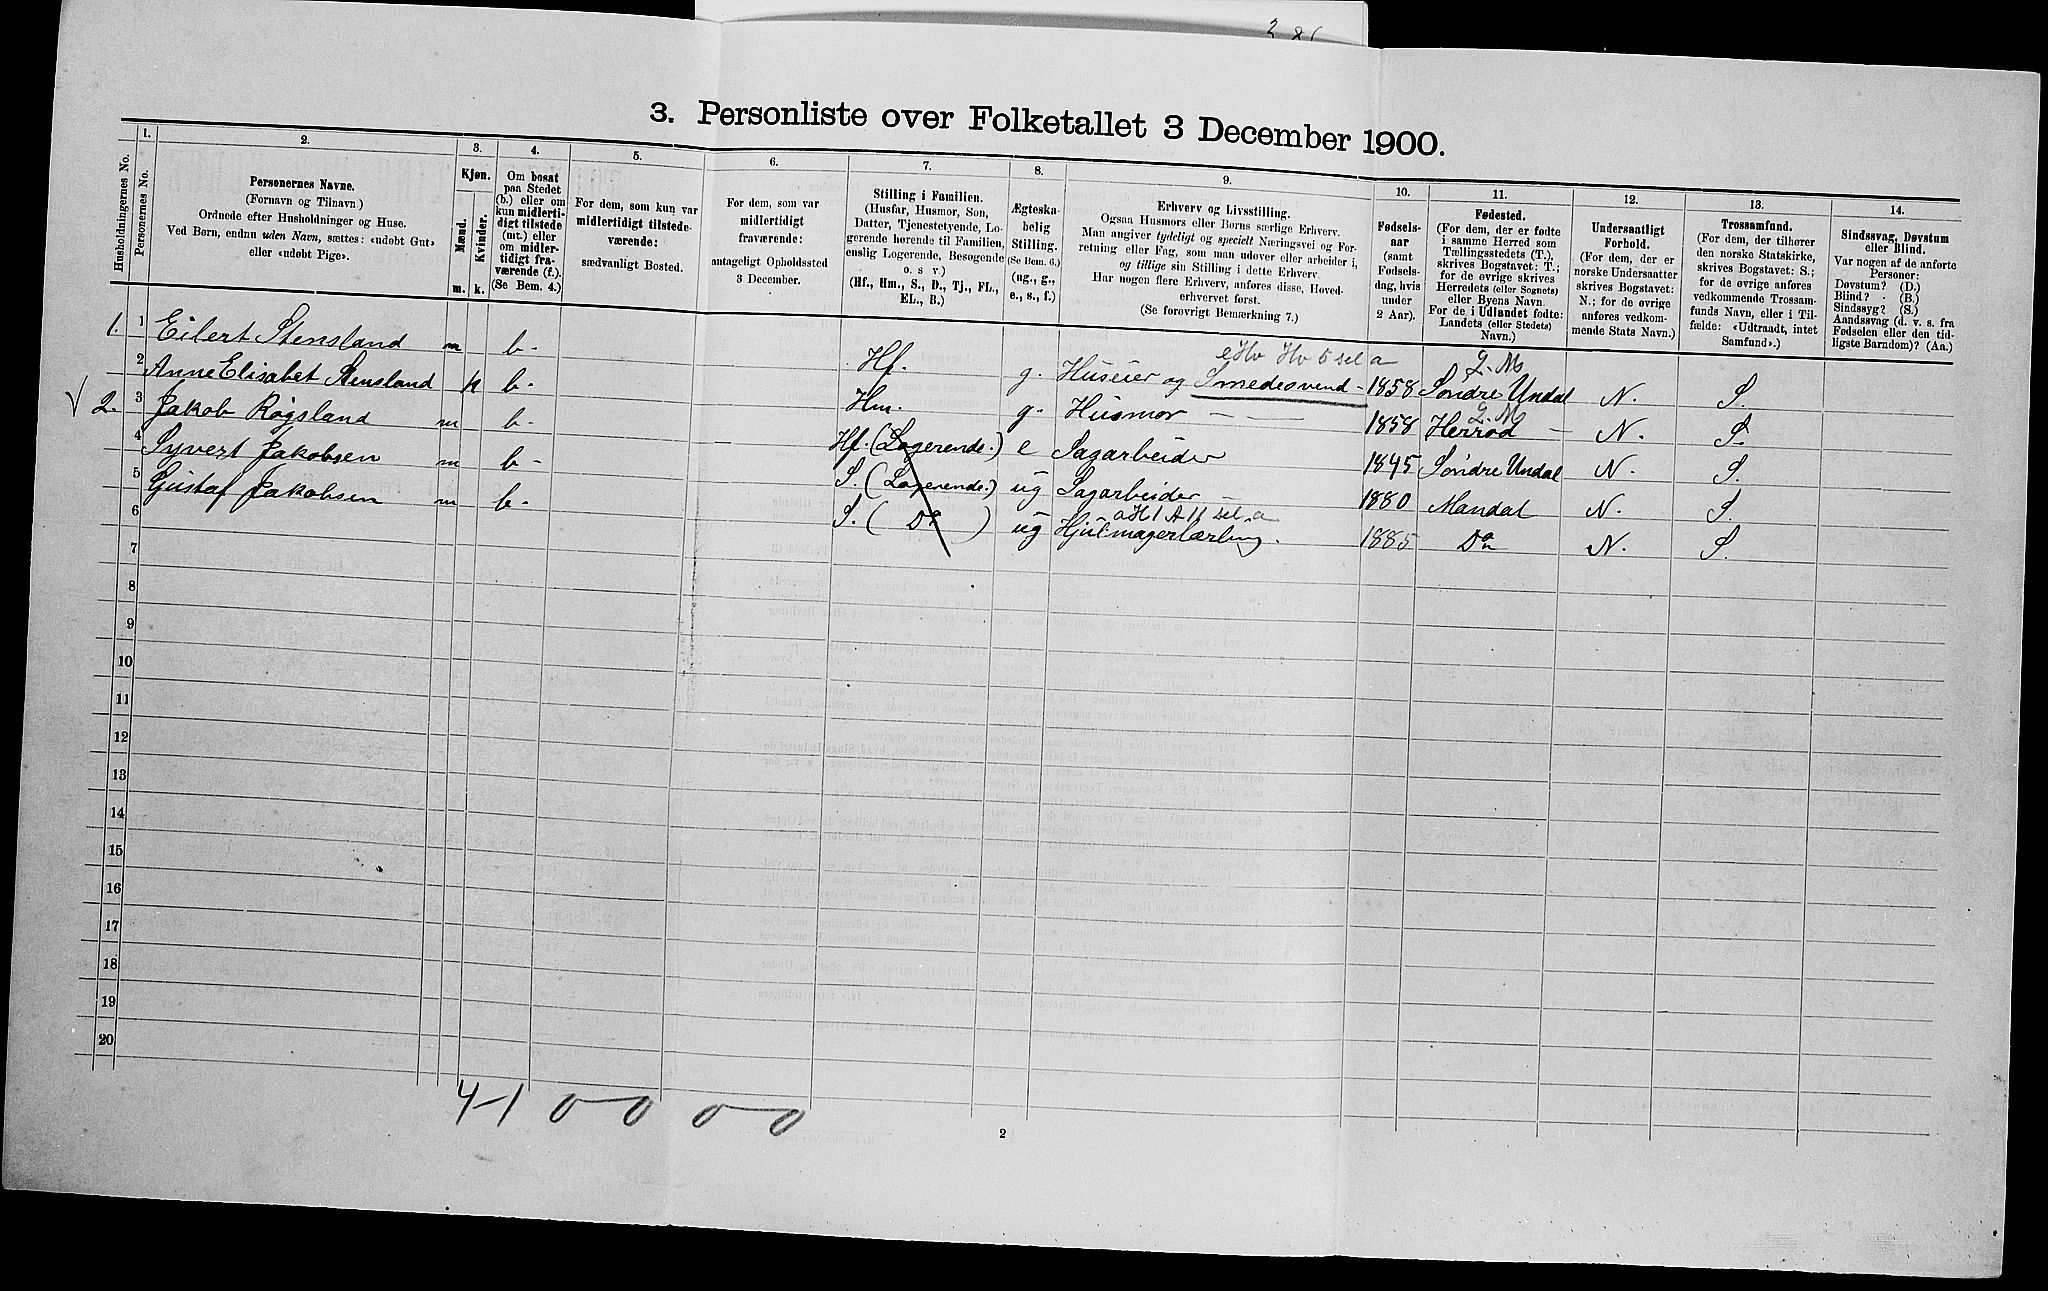 3. Personliste over Folketallet 3 December 1900.
Husholdningernes No.
1.
Personernes No.
2.
Personernes Navne.
(Fornavn og Tilnavn.)
Ordnede efter Husholdninger og Huse.
Ved Børn, endnu uden Navn, sættes: «udøbt Gut»
eller «udøbt Pige».
3.
Kjøn.
Mænd.
Kvinder.
m.
k.
4.
Om bosat
paa Stedet
(b.) eller om
kun midlerti-
digt tilstede
(mt.) eller
om midler-
tidigt fra-
værende (f.).
(Se Bem. 4.)
5.
For dem, som kun var
midlertidigt tilstede-
værende:
sædvanligt Bosted.
6.
For dem, som var
midlertidigt
fraværende:
antageligt Opholdssted
3 December.
7.
Stilling i Familien.
(Husfar, Husmor, Søn,
Datter, Tjenestetyende, Lo-
gerende hørende til Familien,
enslig Logerende, Besøgende
o. s v.)
(Hf., Hm., S., D., Tj., FL.,
EL., B.)
8.
Ægteska-
belig
Stilling.
(Se Bem. 6.)
(ug., g.,
e., s., f.)
9.
Erhverv og Livsstilling.
Ogsaa Husmors eller Børns særlige Erhverv.
Man angiver tydeligt og specielt Næringsvei og For-
retning eller Fag, som man udøver eller arbeider i,
og tillige sin Stilling i dette Erhverv.
Har nogen flere Erhverv, anføres disse, Hoved-
erhvervet først.
(Se forøvrigt Bemærkning 7.)
10.
Fødsels-
aar
(samt
Fødsels-
dag, hvis
under
2 Aar).
11.
Fødested.
(For dem, der er fødte
i samme Herred som
Tællingsstedets (T.),
skrives Bogstavet: T.;
for de øvrige skrives
Herredets (eller Sognets)
eller Byens Navn.
For de i Udlandet fødte:
Landets (eller Stedets)
Navn.)
12.
Undersaatligt
Forhold.
(For dem, der er
norske Undersaatter
skrives Bogstavet:
N.; for de øvrige
anføres vedkom-
mende Stats Navn.)
13.
Trossamfund.
(For dem, der tilhører
den norske Statskirke,
skrives Bogstavet: S.;
for de øvrige anføres
vedkommende Trossam-
funds Navn, eller i Til-
fælde: «Udtraadt, intet
Samfund».)
14.
Sindssvag, Døvstum
eller Blind.
Var nogen af de anførte
Personer:
Døvstum? (D.)
Blind? (B.)
Sindssyg? (S.)
Aandssvag (d. v. s. fra
Fødselen eller den tid-
ligste Barndom)? (Aa.)
1. 1 Eilert Stensland m b- Hf. g. Huseier og Smedesvend- 1858 Søndre Undal N. S.
2 Anne Elisabet Stensland k b- Hm. g. Husmor 1858 Herrød N. S.
√ 2. 3 Jakob Røgsland m b- Hf. (Logerende.) e Sagarbeider 1845 Søndre Undal N. S.
4 Syvert Jakobsen m b- S. (Logerende.) ug Sagarbeider 1880 Mandal N. S.
5 Gustaf Jakobsen m b- S. ( Do ) ug Hjulmagerlærling. 1885 Do N. S.
6
7
8
9
10
11
12
13
14
15
16
17
18
19
20
4-1 0-0 0-0
2